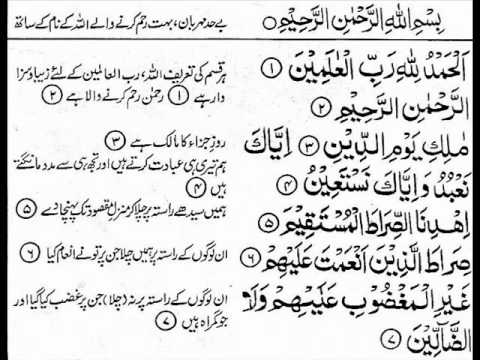 بِسْمِ اللهِ الرَّحْمٰنِ الرَّحِيْمِ
اَلْحَمْدُ لِلّٰهِ رَبِّ الْعٰلَمِيْنَ ①
الرَّحْمٰنِ الرَّحِيْمِ ②
مٰلِكِ يَوْمِ الدِّيْنِ ③ اِيَّاكَ
نَعْبُدُ وَاِيَّاكَ نَسْتَعِيْنُ ④
اِهْدِنَا الصِّرَاطَ الْمُسْتَقِيْمَ ⑤
صِرَاطَ الَّذِيْنَ اَنْعَمْتَ عَلَيْهِمْ ⑥
غَيْرِ الْمَغْضُوْبِ عَلَيْهِمْ وَلَا
الضَّآلِّيْنَ ⑦
بے حد مہربان، بہت رحم کرنے والے اللہ کے نام کے ساتھ
ہر قسم کی تعریف اللہ، رب العالمین کے لئے زیبا و سزا
وار ہے ① رحمٰن رحم کرنے والا ہے ②
روزِ جزاء کا مالک ہے ③
ہم تیری ہی عبادت کرتے ہیں اور تجھ ہی سے مدد مانگتے
ہیں ④
ہمیں سیدھے راستہ پر چلا کر منزلِ مقصود تک پہنچا دے ⑤
ان لوگوں کے راستہ پر ہمیں چلا جن پر تو نے انعام کیا ⑥
ان لوگوں کے راستہ پر نہ (چلا) جن پر غضب کیا گیا اور
جو گمراہ ہیں ⑦